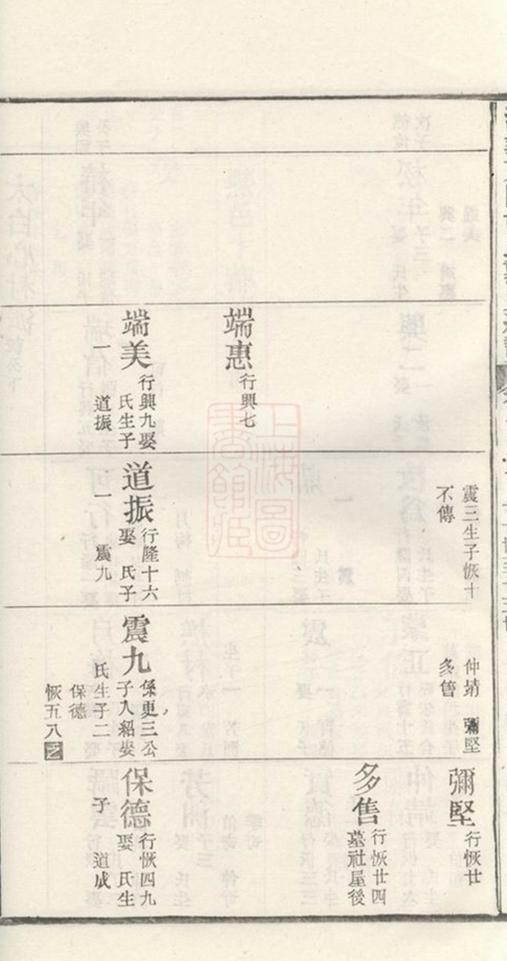 端惠
行興七
端美
行興九娶
氏生子
一
道振
震三生子恢十
不傳
道振
行隆十六
娶 氏子
一 震九
仲靖 彌堅
多售
震九
係更三公
子入紹娶
氏生子二
保德
恢五八
彌堅
行恢廿
多售
行恢廿四
墓社屋後
保德
行恢四九
娶 氏生
子 道成
上海圖
書館藏